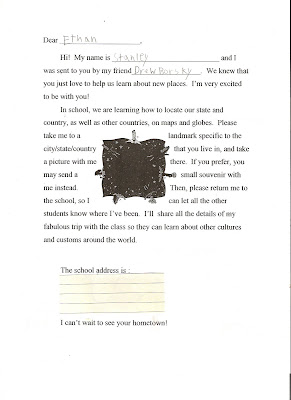 Dear Ethan,
Hi! My name is Stanley and I
was sent to you by my friend Drew Borsky. We knew that
you just love to help us learn about new places. I'm very excited
to be with you!
In school, we are learning how to locate our state and
country, as well as other countries, on maps and globes. Please
take me to a landmark specific to the
city/state/country that you live in, and take
a picture with me there. If you prefer, you
may send a small souvenir with
me instead. Then, please return me to
the school, so I can let all the other
students know where I've been. I'll share all the details of my
fabulous trip with the class so they can learn about other cultures
and customs around the world.
The school address is:
I can't wait to see your hometown!